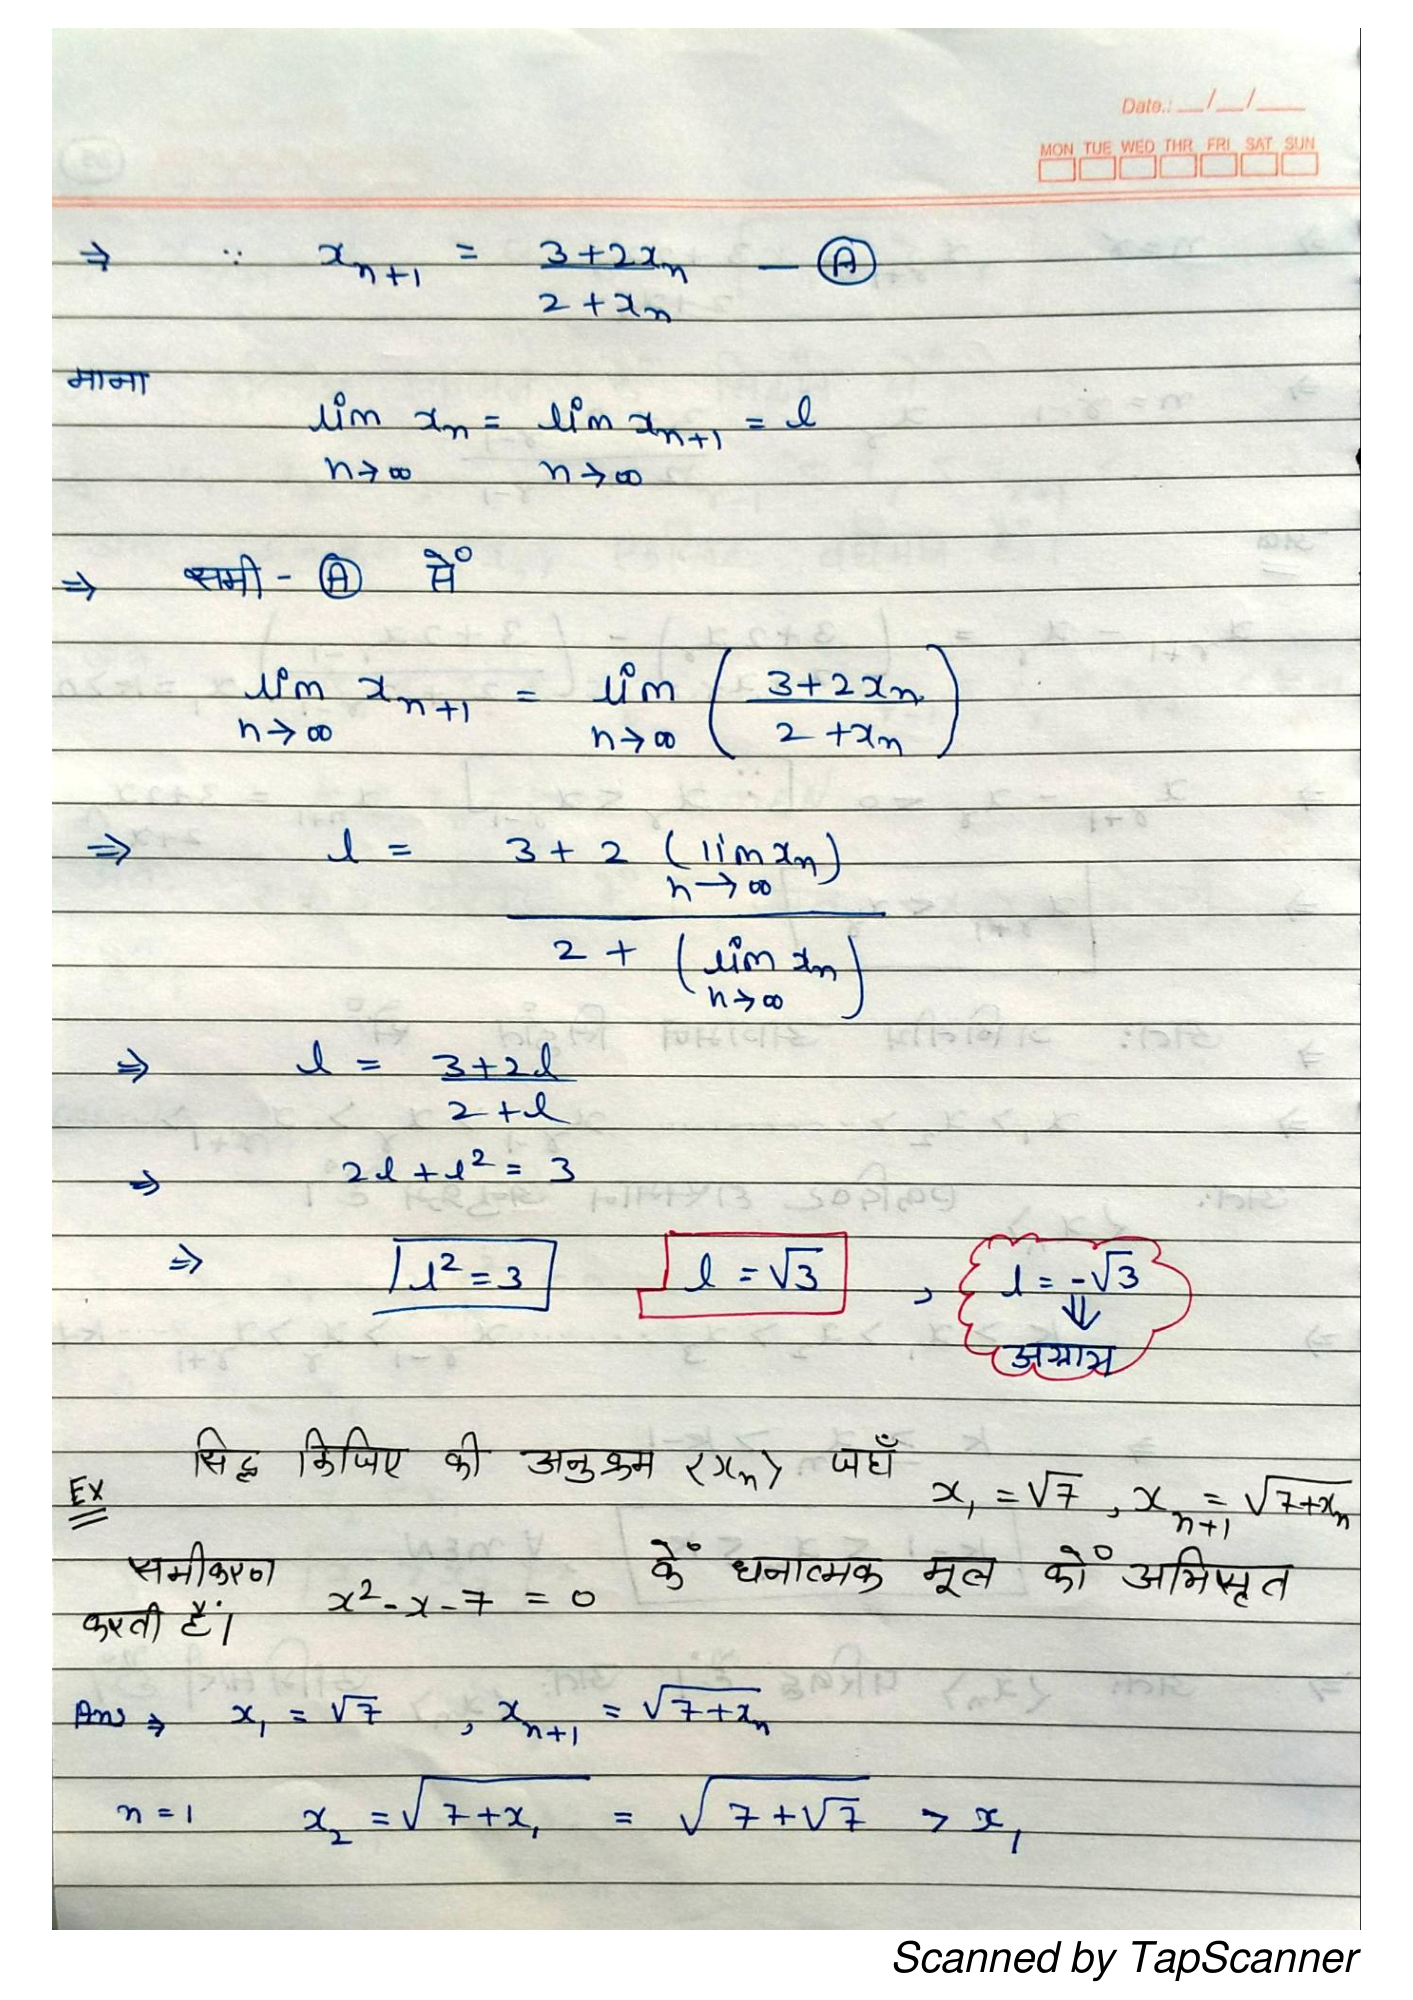 Date.: __/__/___
MON TUE WED THR FRI SAT SUN
⇒ ∵ x_{n+1} = (3+2x_n)/(2+x_n) — Ⓐ
माना
lim_{n→∞} x_n = lim_{n→∞} x_{n+1} = l
⇒ समी - Ⓐ से
lim_{n→∞} x_{n+1} = lim_{n→∞} ((3+2x_n)/(2+x_n))
⇒ l = (3 + 2 (lim_{n→∞} x_n))/(2 + (lim_{n→∞} x_n))
⇒ l = (3+2l)/(2+l)
⇒ 2l + l² = 3
⇒ l² = 3 l = √3 , l = -√3
⇓
अमान्य
Ex सिद्ध किजिए की अनुक्रम <x_n> जहाँ x_1 = √7 , x_{n+1} = √(7+x_n)
समीकरण x² - x - 7 = 0 के धनात्मक मूल को अभिसृत
करती हैं।
Ans ⇒ x_1 = √7 , x_{n+1} = √(7+x_n)
n = 1 x_2 = √(7+x_1) = √(7+√7) > x_1
Scanned by TapScanner